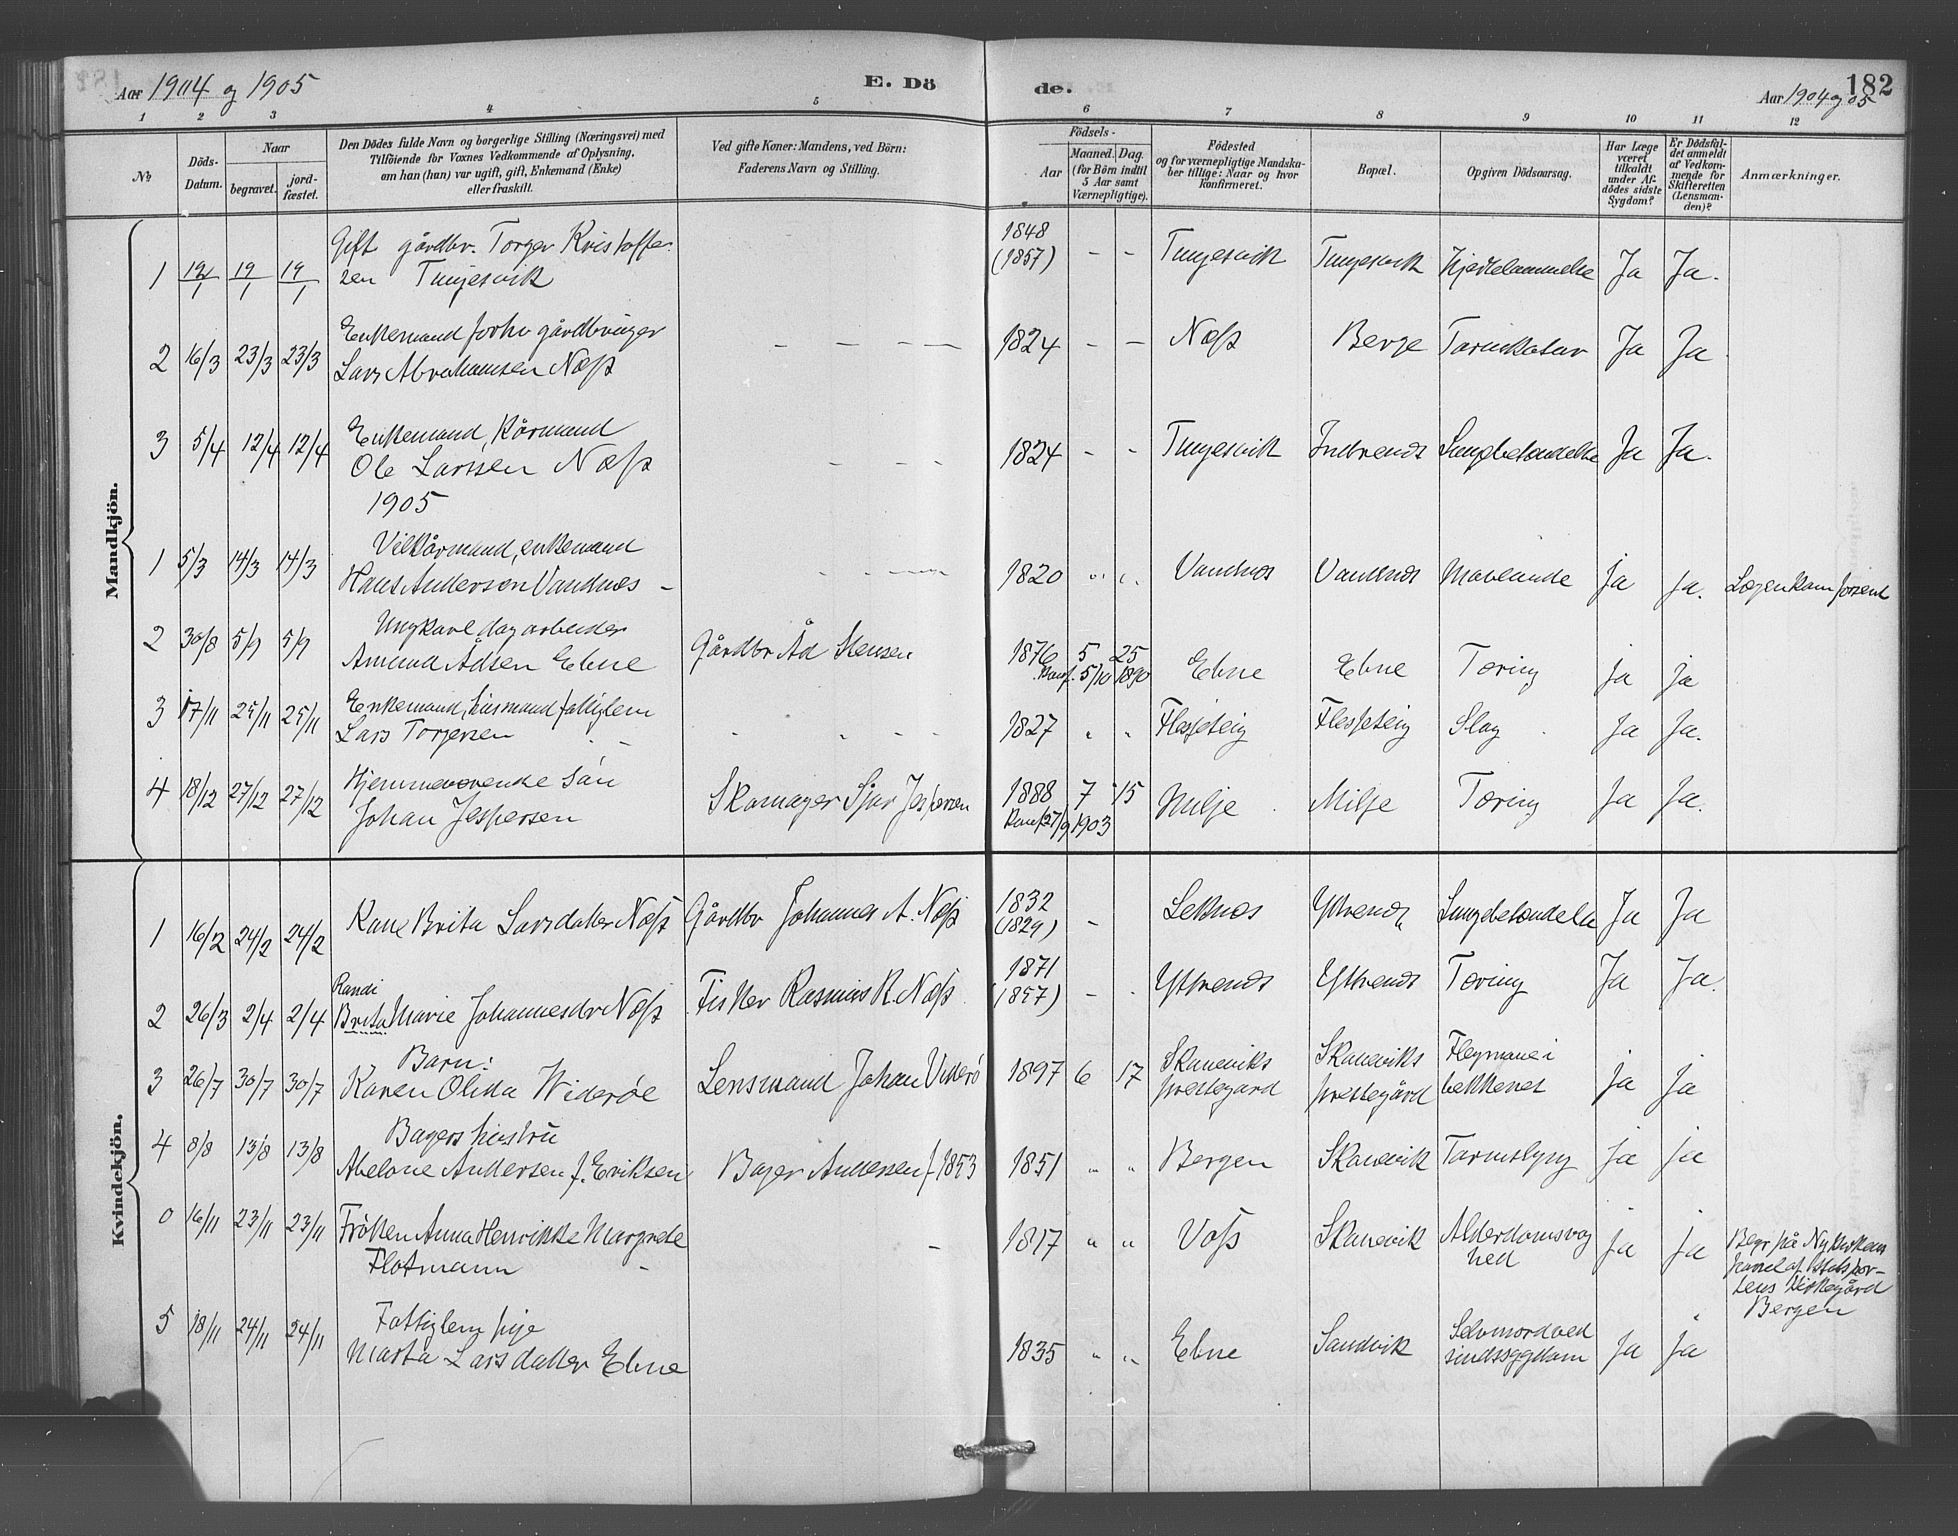 Aar 1904 og 1905
E. Dö
de.
Aar 1904 og 05
182
1 2 3 4 5 6 7 8 9 10 11 12
No
Döds-Datum.
Naar
begravet.
jordfæstet.
Den Dödes fulde Navn og borgerlige Stilling (Næringsvei) med
Tilföiende for Voxnes Vedkommende af Oplysning,
om han (hun) var ugift, gift, Enkemand (Enke)
eller fraskilt.
Ved gifte Koner: Mandens, ved Börn:
Faderens Navn og Stilling.
Födsels-
Aar
Maaned. Dag.
(for Börn indtil
5 Aar samt
Værnepligtige).
Födested
og for værnepligtige Mandskaber tillige: Naar og hvor
konfirmeret.
Bopæl.
Opgiven Dödsaarsag.
Har Læge været tilkaldt under Afdödes sidste Sygdom?
Er Dödsfaldet anmeldt af Vedkommende for Skifteretten (Lensmanden)?
Anmærkninger.
Mandkjön.
1 12/1 19/1 19/1 Gift gårdbr. Torger Kristoffersen Tungesvik 1848 (1857) - - Tungesvik Tungesvik Hjertelammelse Ja Ja.
2 16/3 23/3 23/3 Enkemand forhv gårdbruger
Lars Abrahamsen Næss - - - - 1824 - - Næss Berge Tarmkatar Ja Ja
3 5/4 12/4 12/4 Enkemand, Kårmand
Ole Larssen Næss - - - 1824 - - Tungesvik Indrenes Lungebetændelse Ja Ja.
1905
1 5/3 14/3 14/3 Vilkårmand, enkemand
Hans Andersen Vandnes - 1820 " " Vandnes Vandnes Mavesaade Ja Ja. Lægen kom forsent
2 30/8 5/9 5/9 Ungkarl dagarbeider
Amund Ådsen Ebne Gårdbr Åd Stensen 1876 5 25
Konf. 5/10 1890 Ebne Ebne Tæring Ja Ja
3 17/11 25/11 25/11 Enkemand, husmand fattiglem
Lars Torgersen 1827 " " Flesjeteig Flesjeteig Slag Ja Ja.
4 18/12 27/12 27/12 Hjemmeværende sön
Johan Jespersen Skomager Sjur Jespersen 1888 7 15
Konf 27/9 1903 Milje Milje Tæring Ja Ja.
Kvindekjön.
1 16/2 24/2 24/2 Kone Brita Larsdatter Næss Gårdbr Johannes A. Næss 1832 (1829) - Leknes Ytrenes Lungebetændelse Ja Ja
2 26/3 2/4 2/4 Randi
Brita Marie Johannesdr Næss Fisker Rasmus R. Næss 1871 (1857) - Ytrenes Ytrenes Tæring Ja Ja.
3 26/7 30/7 30/7 Barn:
Karen Olida Wideröe Lensmand Johan Viderö 1897 6 17 Skaneviks
prestegard Skaneviks
prestegård Flegmone i
bekkenet Ja Ja
4 8/8 13/8 13/8 Bagers hustru
Abelone Andersen f. Eriksen Bager Andersen f 1853 1851 " " Bergen Skanevik Tarmslyng Ja Ja
0 16/11 23/11 23/11 Fröken Anna Henrikke Margrete
Flotmann - 1817 " " Voss Skanevik Alderdomsvaghed Ja Ja Begr på Nykirkens
parcel af Stadsportens Kirkegård
Bergen
5 18/11 24/11 24/11 Fattiglem pige
Marta Larsdatter Ebne 1835 " " Ebne Sandvik Selvmord ved
sindssygdom Ja Ja